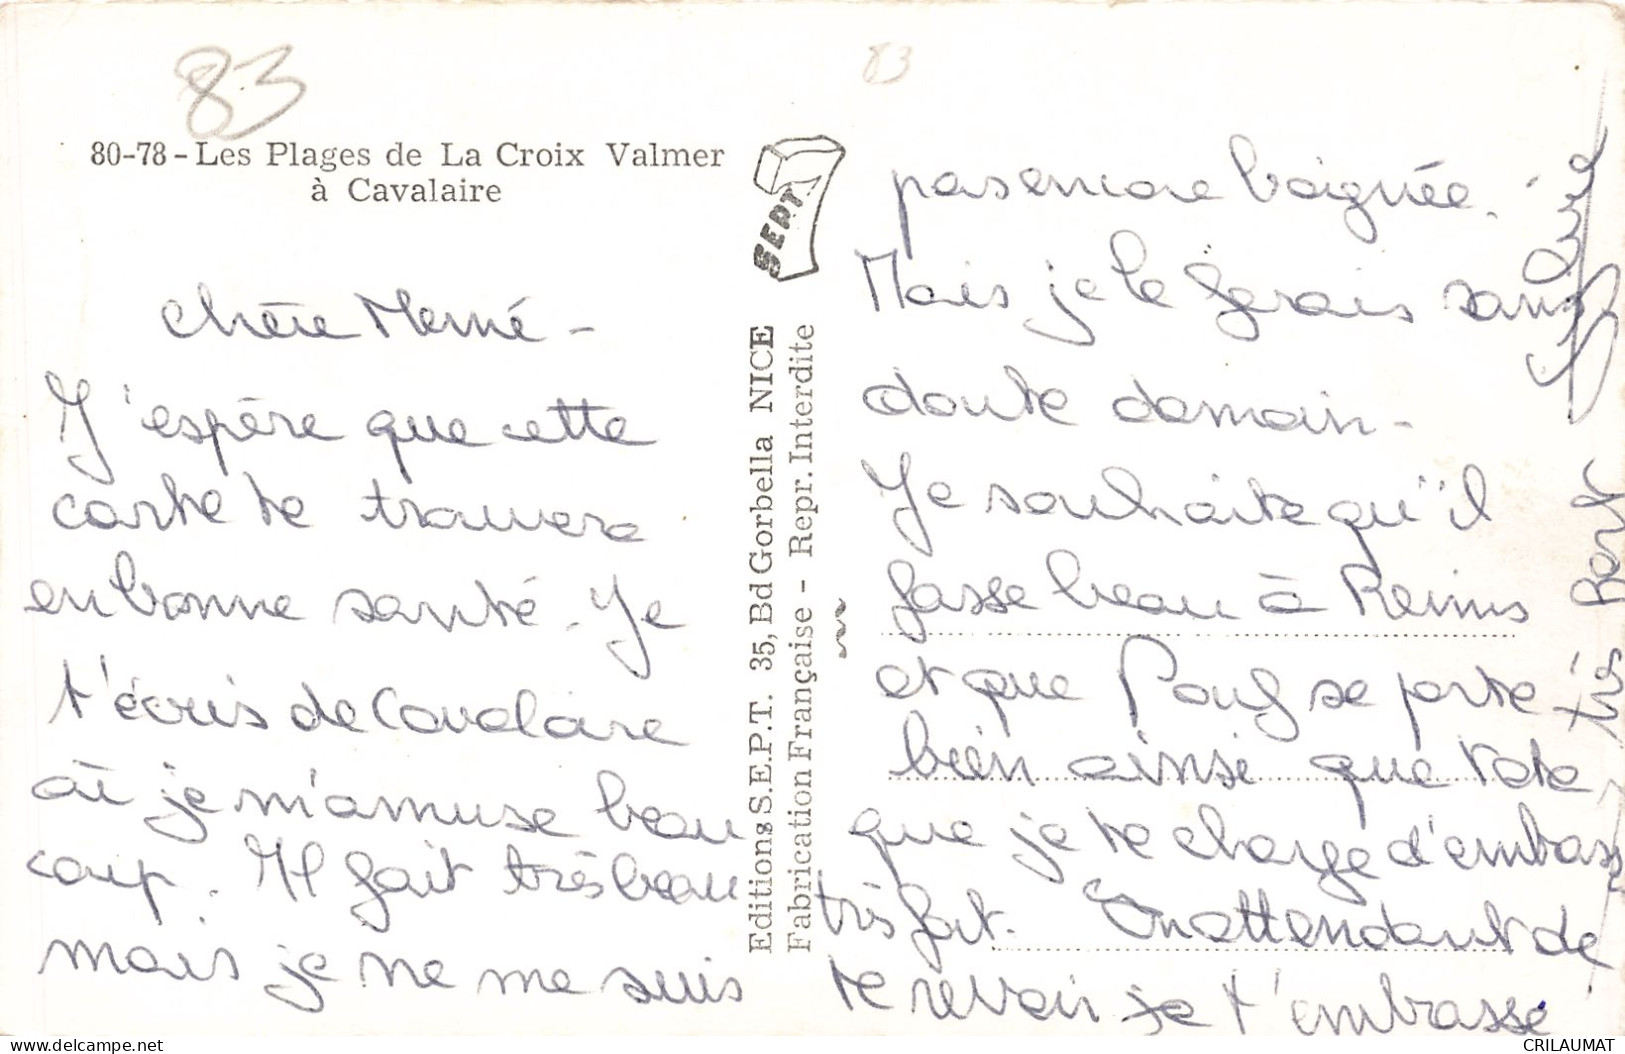 83
83
80-78 - Les Plages de La Croix Valmer
à Cavalaire
SEPT
Editions S.E.P.T. 35, Bd Gorbella NICE
Fabrication Française - Repr. Interdite
chère Mémé -
J'espère que cette
carte te trouvera
en bonne santé. Je
t'écris de Cavalaire
où je m'amuse beau
coup. Il fait très beau
mais je ne me suis
pas encore baignée.
Mais je le ferais sans
doute demain -
Je souhaite qu'il
fasse beau à Reims
et que Paul se porte
bien ainsi que
que je te charge d'embrass
très fort. En attendant de
te revoir je t'embrasse
très fort
CRILAUMAT